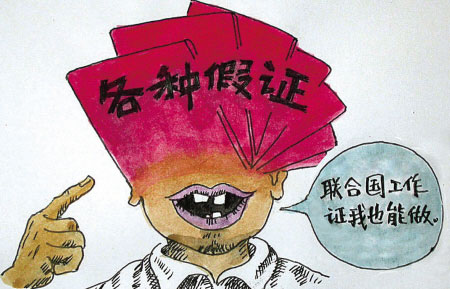 各种假证
联合国工作
证我也能做。